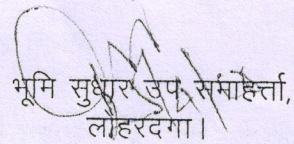 भूमि सुधार उप समाहर्त्ता,
लोहरदगा।